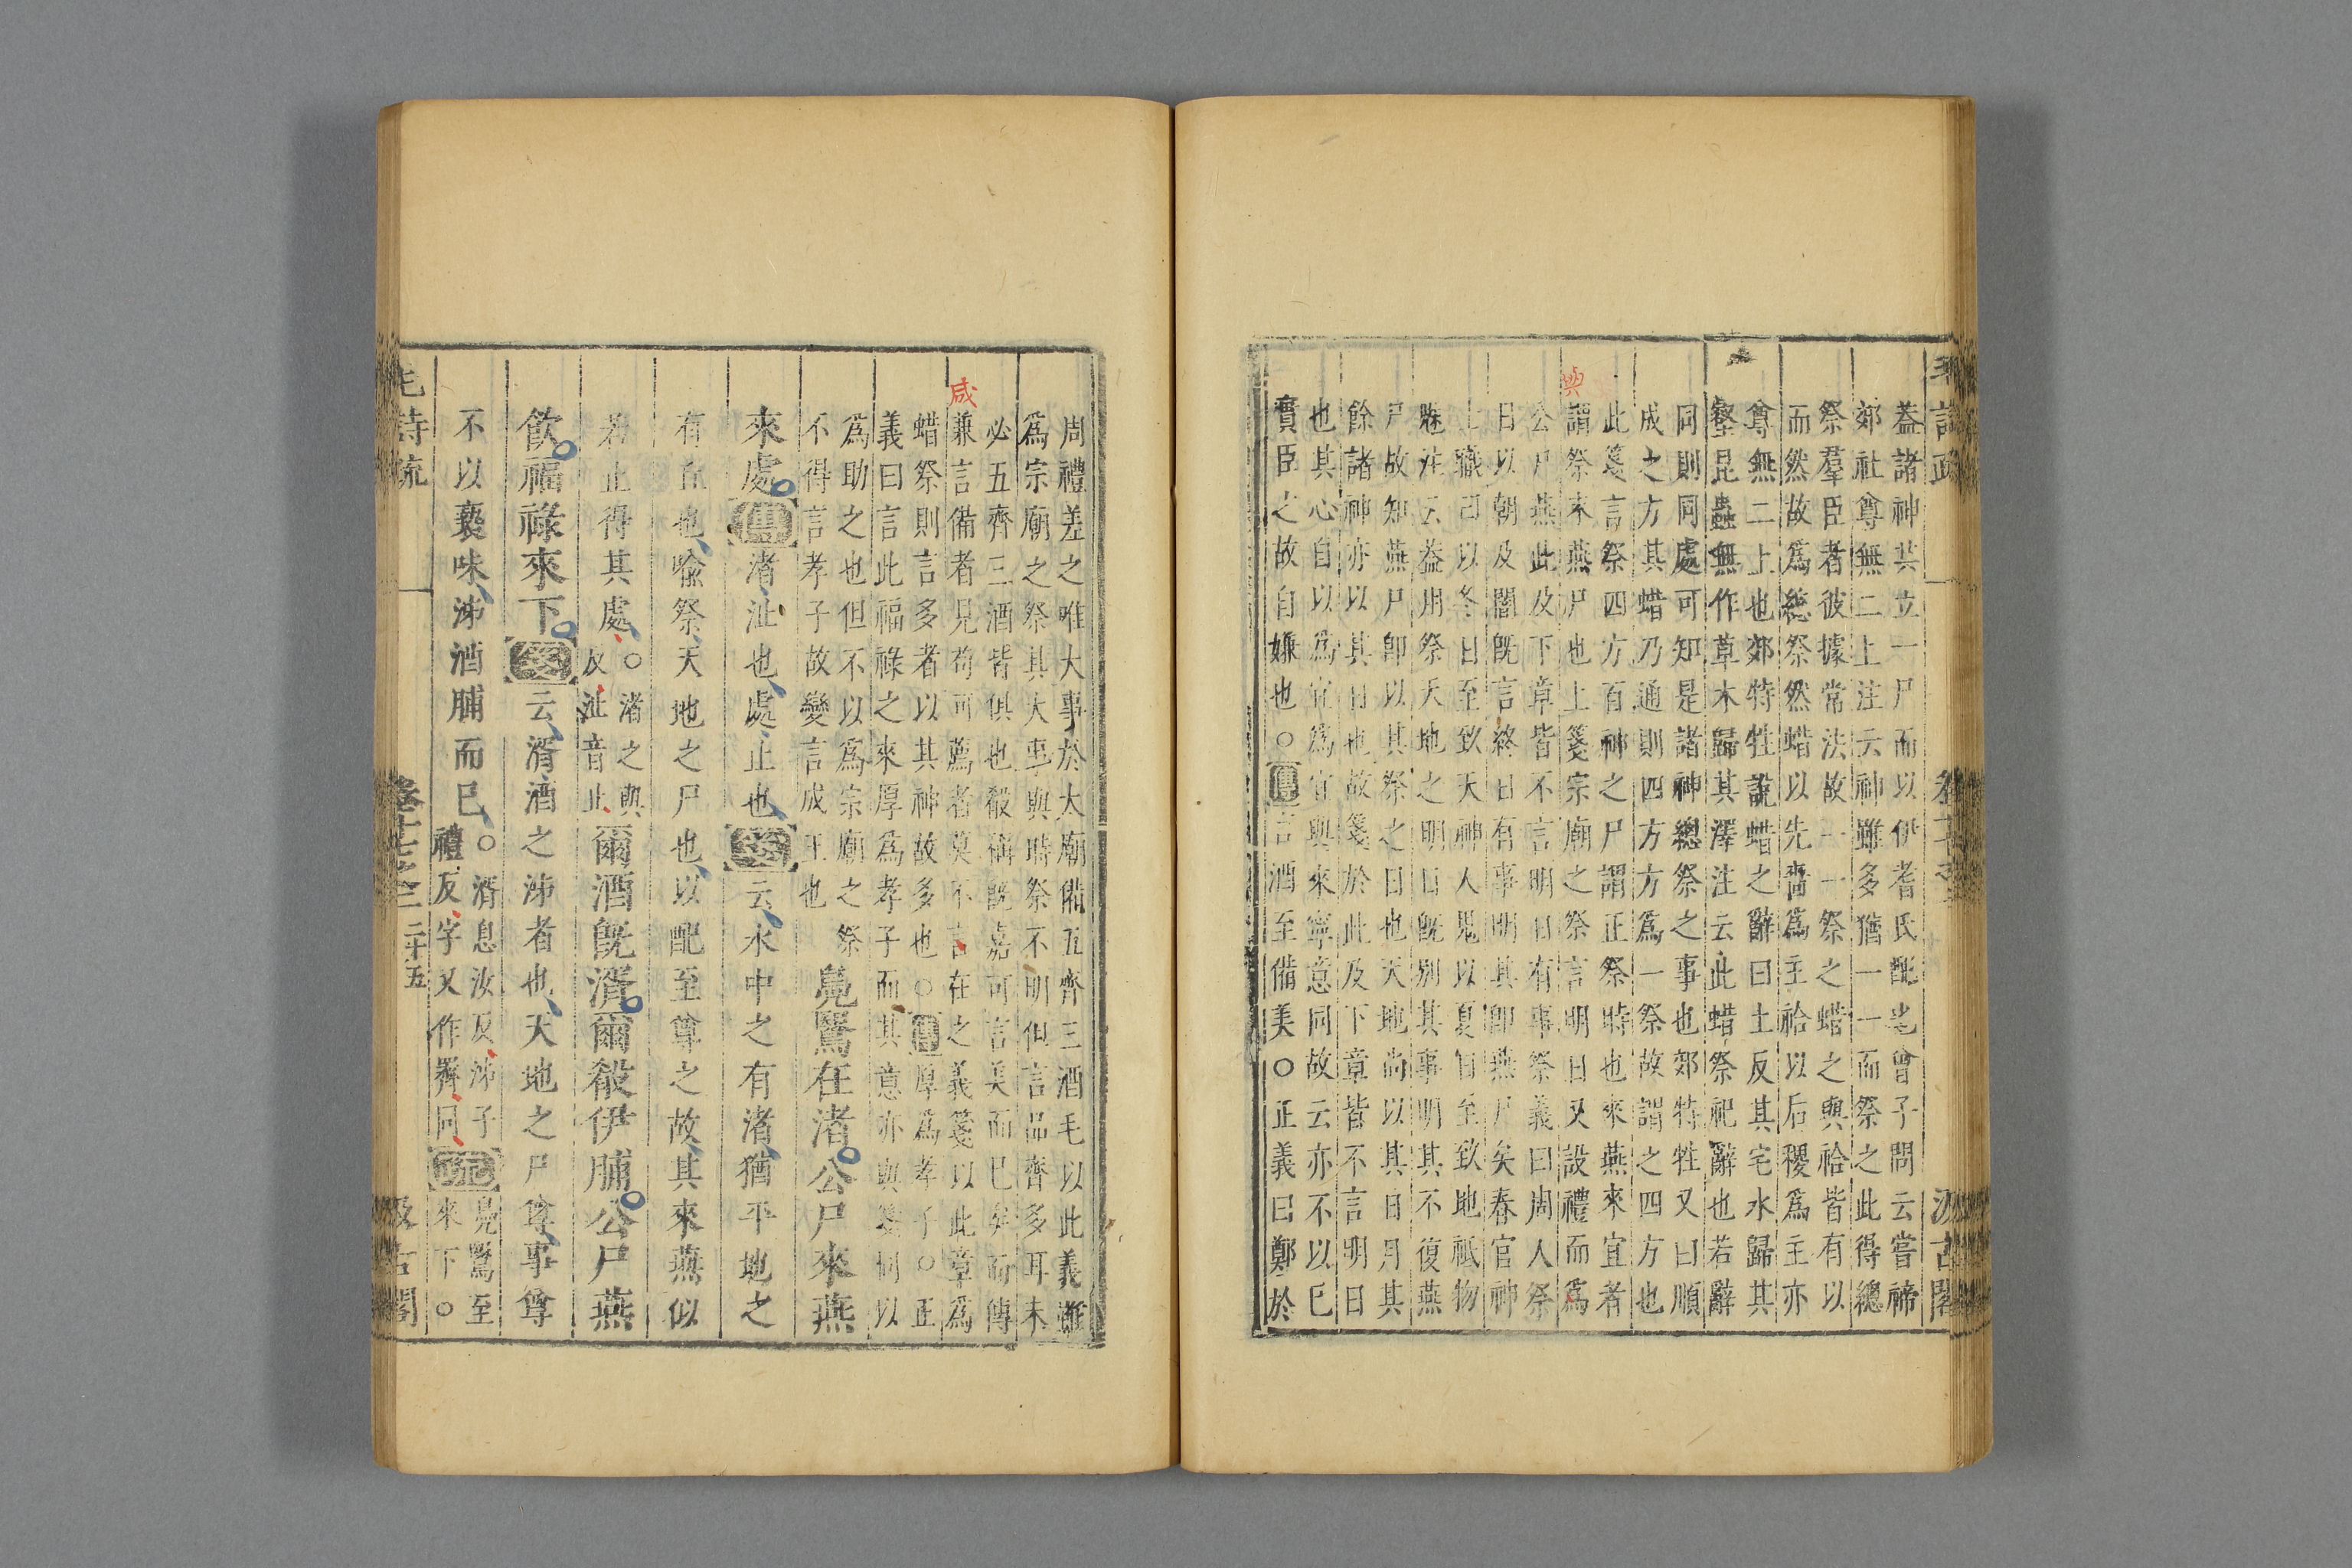 毛詩疏
卷十七之二
汲古閣
蓋諸神共立一尸而以伊耆氏配也曾子問云嘗禘
郊社尊無二上注云神雖多猶一一而祭之此得總
祭羣臣者彼據常法故一一祭之蜡之與祫皆有以
而然故為總祭然蜡以先嗇為主祫以后稷為主亦
尊無二上也郊特牲說蜡之辭曰土反其宅水歸其
壑昆蟲無作草木歸其澤注云此蜡祭祀辭也若辭
同則同處可知是諸神總祭之事也郊特牲又曰順
成之方其蜡乃通則四方方為一祭故謂之四方也
此箋言祭四方百神之尸謂正祭時也來燕來宜者
謂祭末燕尸也上箋宗廟之祭言明日又設禮而為
公尸燕此及下章皆不言明日有事祭義曰周人祭
日以朝及闇旣言終日有事明其卽燕尸矣春官神
上職曰以冬日至致天神人鬼以夏日至致地祇物
魅注云蓋用祭天地之明日旣別其事明其不復燕
尸故知燕尸卽以其祭之日也天地尚以其日月其
餘諸神亦以其日也故箋於此及下章皆不言明日
也其心自以為宜為官與來寧意同故云亦不以巳
實臣之故自嫌也○傳言酒至備美○正義曰鄭於
與
周禮差之唯大事於太廟備五齊三酒毛以此義難
為宗廟之祭其大事與時祭不明但言品齊多耳未
必五齊三酒皆俱也殽稱旣嘉可言美而巳矣而傳
兼言備者見苟可薦者莫不言在之義箋以此章為
咸
蜡祭則言多者以其神故多也○傳厚為孝子○正
義曰言此福祿之來厚為孝子而其意亦與箋同以
為助之也但不以為宗廟之祭
不得言孝子故變言成王也
鳧鷖在渚公尸來燕
來處傳渚沚也處止也箋云水中之有渚猶平地之
有丘也喩祭天地之尸也以配至尊之故其來燕似
若止得其處○渚之與
反沚音止
爾酒旣湑爾殽伊脯公尸燕
飲福祿來下箋云湑酒之泲者也天地之尸尊事尊
不以褻味泲酒脯而巳○湑息汝反泲子
禮反字又作齊同疏鳧鷖至
來下○
毛詩疏
卷十七之二
二十五
汲古閣